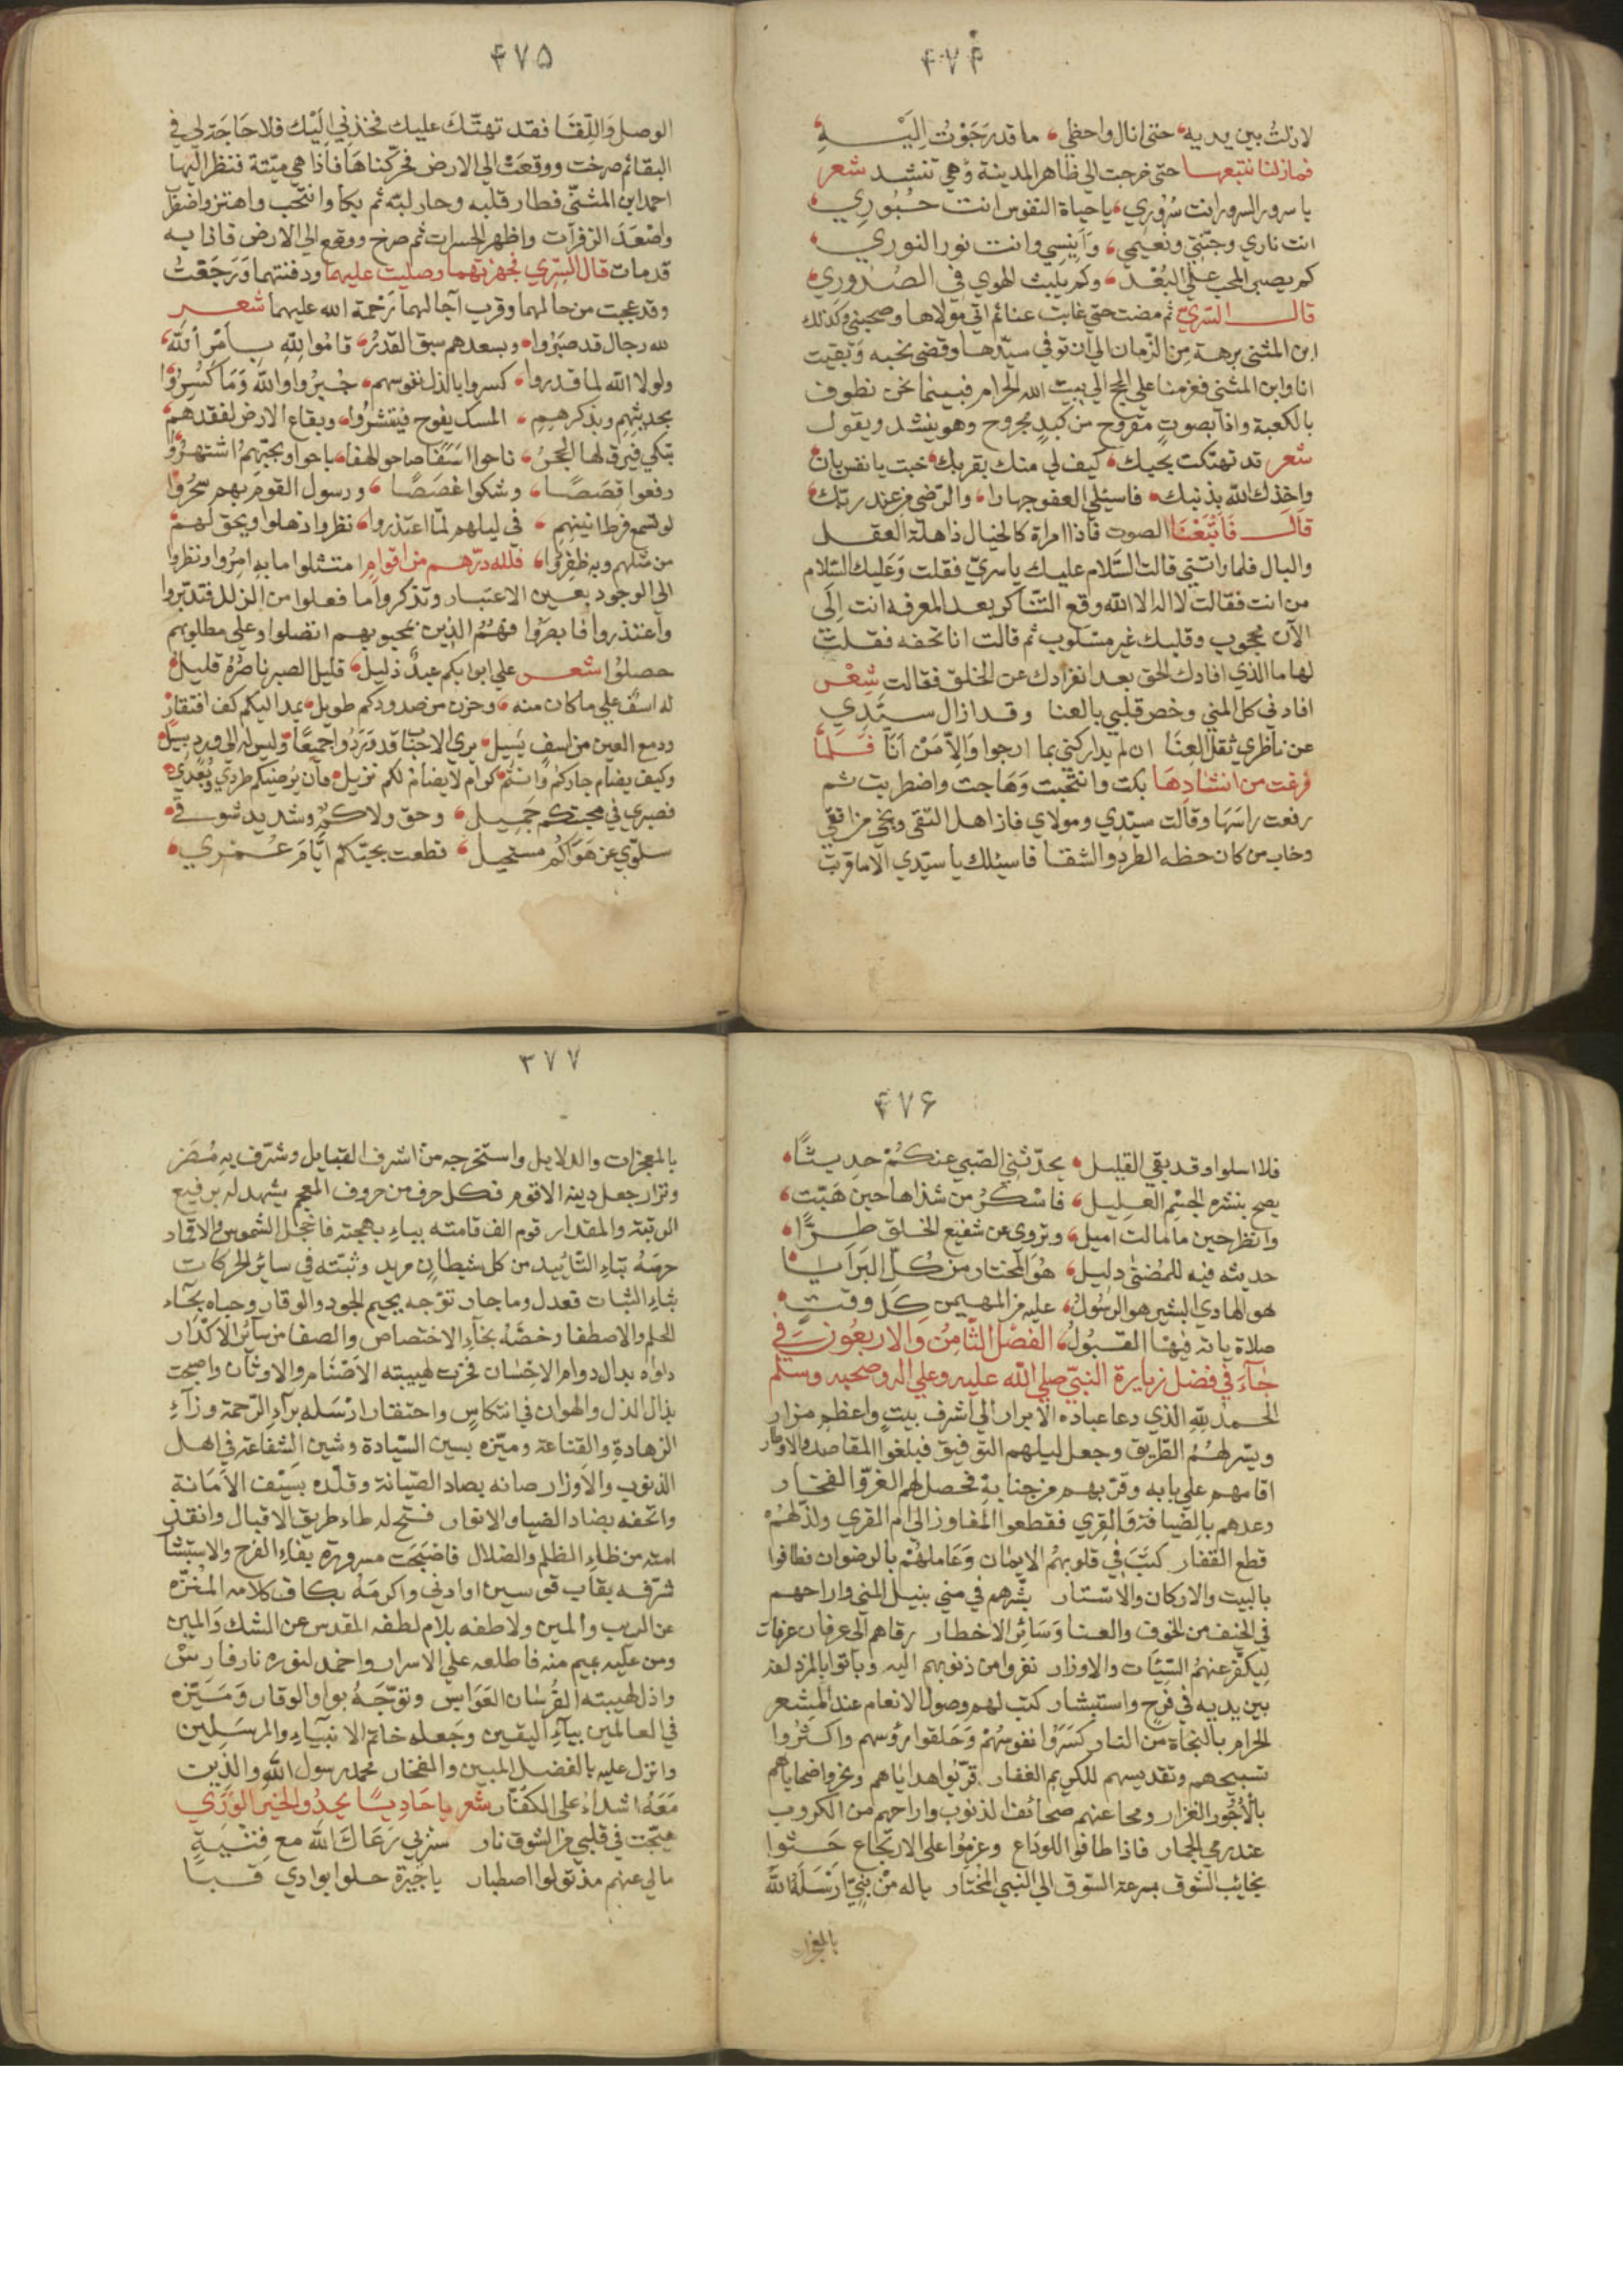 ۴۷۴
لازلتُ بين يديه حتى انال واحظي ما قد رَجَوْتُ اِلَيْهِ
فمازلنا نتبعها حتى خرجت الي ظاهر المدينة وهي تنشد شعر
يا سرور السرور انت سُرُوري يا حياة النفوس انت حُبُورِي
انت ناري وجنّتي ونعيمي وَاَنِيسِي وانت نور النوري
كم يصبر المحب علي البُعْد وكم يَلبث الهوي في الصُدُورِي
قال السّريّ ثم مضت حتي غابت عنا ثم اتي مَوْلاها وصحبني وكذلك
ابن المثنى برهة مِنَ الزّمان الي ان توفي سيّدها وقضى نحبه وَبَقيت
انا وابن المثنى فعزمنا علي الحج الي بيت الله الحرام فبينما نحن نطوف
بالكعبة واذا بصوتٍ مقروح من كبدٍ مجروح وهو ينشد ويقول
شعر قد تهتكت بحبك كيف لي منك بقربك خبت يا نفس بان
واخذك الله بذنبك فاسئلي العفو جهارا والرّضي من عند ربّك
قَالَ فَاتَّبَعْنَا الصوت فاذا امراة كالخيال ذاهلة العقل
والبال فلما راتني قالت السَّلام عليك يا سريّ فقلت وَعَليك السَّلام
من انت فقالت لا اله الا الله وقع التنَاكر بعد المعرفه انت اِلَى
الآن محجوب وقلبك غير مسَلوب ثم قالت انا تحفه فقلت
لها ما الذي افادك الحق بعد انفرادك عن الخلق فقالت شِعْر
افاد في كل المني وخص قلبي بالعنا وقد ازال سيّدِي
عن ناظري ثقل العِنَا ان لم يداركني بما ارجوا وَاِلاَّ مَنْ اَنَا فَلَمَّا
فرغت من انشادِهَا بكت وانتحبت وَهَاجت واضطربت ثم
رفعت راسَهَا وقالت سيّدي ومولاي فاز اهل التقى
وخاب من كان حظه الطرد والشقا فاسئلك يا سيّدي الا ما قربت
۴۷۵
الوصل وَاللِّقَا فقد تهتّكَ عليك فخذني اِلَيْك فلا حَاجَة لي في
البقا ثم صرخت ووقعَتْ الي الارض فحرّكناهَا فاذا هي ميّتة فنظر اليها
احمد ابن المثنّي فطار قلبه وحار لبّه ثم بكا وانتحب واهتز واضطرَ
واصْعَدَ الزفرآت واظهر الحسرات ثم صرخ ووقع الي الارض فاذا به
قد مات قال السّري فجهزتهما وصليت عليهما ودفنتهما وَرَجَعْتُ
وقد عجبت من حالهما وقرب آجالهما رَحْمة الله عليهما شعر
لله رجال قد صَبَرُوا وبسعدهم سبق القدَرُ قامُوا لِلّهِ بِاَمْرِ اَللّه
ولولا الله لما قدروا كسروا بالذل نفوسهم جُبِرُوا والله وَمَا كُسِرُوْا
بحديثهِم وبذكرهِم المسك يفوح فينتشرُوا وبقاع الارض لفقدهم
تبكي فيرق لها الحَجَرُ ناحوا اسَفًا صاحوا لهفا باحوا وبحبّهِم اُشتهِرُوا
رفعوا قصَصًا وشكوا غصَصًا ورسول القوم بهم سَحُرُوا
لو تسمع فرط انينهم في ليلهم لمّا اعتذروا نظروا ذهلوا ويحق لهم
من مثلهم وبه ظفِرُوا فلله درّهم من اقوامٍ امتثلوا ما به اُمِرُوا ونظروا
الي الوجود بعين الاعتبار وتذكروا ما فعلوا من الزلل فتدبّروا
واعتذروا فابصَرُوا فهُمُ الذين بمحبوبهم اتصلوا وعلي مطلوبهم
حصلوا شعر علي ابوابكم عبدٌ ذَليلٌ قليل الصبر ناصُرُه قليلٌ
له اسفٌ علي ما كان منه وحزن من صدودكم طويل يمد اليكم كف افتقارٍ
ودمع العين من اسفٍ يَسِيل يري الاحبَابَ قد وَرَدُوا جميعًا وليس له الي وردٍ سبيل
وكيف يضام جاركمُ وانتم كرام لا يضام لكم نزيل فان يُرضيكم طردي وَبُعْدِي
فصبري في محبتكم جَمِيل وحق ولاكم وشديد شوقي
سلوّي عن هَوَاكُم مستحيل قطعت بحبّكم ايَّامَ عُمْرِي
۴۷۶
فلا اسلوا وقد بقي القليل يحدّثني الصَّبي عنكُمْ حديثًا
يصح بنشره الجسْم العليل فاسْكَرُ من شذاها حين هَبّت
وانظر حين ما مالت اميل وتروي عن شفيع الخلق طرًّا
حديثه فيه للمُضنى دليل هُوَ المختار مِنْ كُلِّ البَرَايَا
هو الهادي البشير هو الرسُولُ عليه من المهيمن كل وقتٍ
صلاة يانه فيهَا القبُولُ الفصْل الثامِنُ وَالاربَعُونَ في
جَآءَ في فضل زيارة النبيّ صلى الله عليه وعلي اله وصحبه وسلم
الحمد لِلّهِ الذي دعا عباده الابرار الي اشرف بيتٍ واعظم مزارٍ
ويسّر لهُمُ الطّريق وجعل ليلهم التوفيق فبلغوا المقاصد والاوطار
اقامهم علي بابه وقرّبهم من جنابه فحصل لهم العزّ والفخار
وعدهم بالضيَافة وَالقِرِي فقطعوا المفاوز الي ام القري ولذَّلهُمْ
قطع القفار كتَبَ في قلوبهُم الايمَان وَعَاملهُمْ بالرضوان فطافوا
بالبيت والاركان والاسْتار بشّرهم في مني بنيل المني واراحهم
في الخيف من الخوف والعنا وَسَائر الاخطار رقاهم الى عرفان عرفات
لِيكفّر عنهُمُ السَّيّئات والاوزار نفروا من ذنوبهم اليه وباتوا بالمزدلفة
بين يديه في فرحٍ واستبشار كتب لهم وصول الانعام عند المشعر
الحرام بالنجَاة من النار كسَرَوُا نفوسَهُمْ وَحَلقوا رؤسهم واكثرُوا
تسبيحهم وتقديسهم للكريم الغفار قرّبوا هداياهم ونحروا ضحاياهم
بالاُجُور الغزار ومحا عنهم صحائف الذنوب واراحهم من الكروب
عند رمي الجمار فاذا طافوا للودَاع وعزموا على الارتجاع حَثوا
نجايب الشوق بسرعة السّوق الي النبي المختار ياله مِنْ نبيّ ارْسَلَهُ اللّه
بالمعجزات
۳۷۷
بالمعجزات والدلايل واستخرجه من اشرف القبايل وشرّف به مُضَر
ونزار جعل دينه الاقوم فكل حرف من حروف المعجم يشهد له برفيع
الرتبة والمقدار قوم الف قامته بباء بهجته فاخجل الشموس والاقمار
حرسَهُ بتاء التّاييد من كل شيطانٍ مريد وثبّته في سائر الحركات
بثاءِ الثبات فعدل وما جار توّجه بجيم الجود والوقار وحباه بحَاء
الحلم والاصطفا وخصَّهُ بخآءِ الاختصاص والصفا من سآئر الاكدَار
داواه بدال دوام الاحْسَان فخرت لهيبته الاصْنَام والاوثان واصبحت
بذال الذل والهوان في انتكاسٍ واحتقار ارْسَله برآءِ الرّحمة وزآءِ
الزهادةِ والقناعة وميّزه بسين السّيادة وشين الشفاعَة في اهل
الذنوب والاوزار صانه بصاد الصّيانة وقلّده بسَيْف الاَمَانة
واتحفه بضاد الضياء والانوار فتح له بطاء طريق الاقبال وانقذ
امته من ظاءِ الظلم والضلال فاضحَت مسرورَةً بفاءِ الفرح والاستبشا
شرّفه بقاب قوسين او ادني واكرمَهُ بكاف كلامه المُنزه
عن الريب والمين ولاطفه بلام لطفه المقدس عن الشك وَالمين
ومن عليه بميم منه فاطلعه علي الاسرار واخمد لنوره نار فارسْ
واذل لهيبته الفُرسَان العَوَابس وتوّجَهُ بواو الوقار وَمَيّزه
في العالمين بيآءِ اليَقين وجَعله خاتم الانبيَآءِ والمرسَلِين
وانزل عليه بالفضل المبين والفخار محمد رسول الله والذين
مَعَهُ اشدآءُ على الكفّار شعر يا حَادِيًا يحدُوا لخير الوَرَي
هيّجت في قلبي من الشوق نار سربي رَعَاكَ الله مع فِتْيَةٍ
مالي عنهم مذ تولوا اصطبار يا جيرة حلوا بوادي قبا